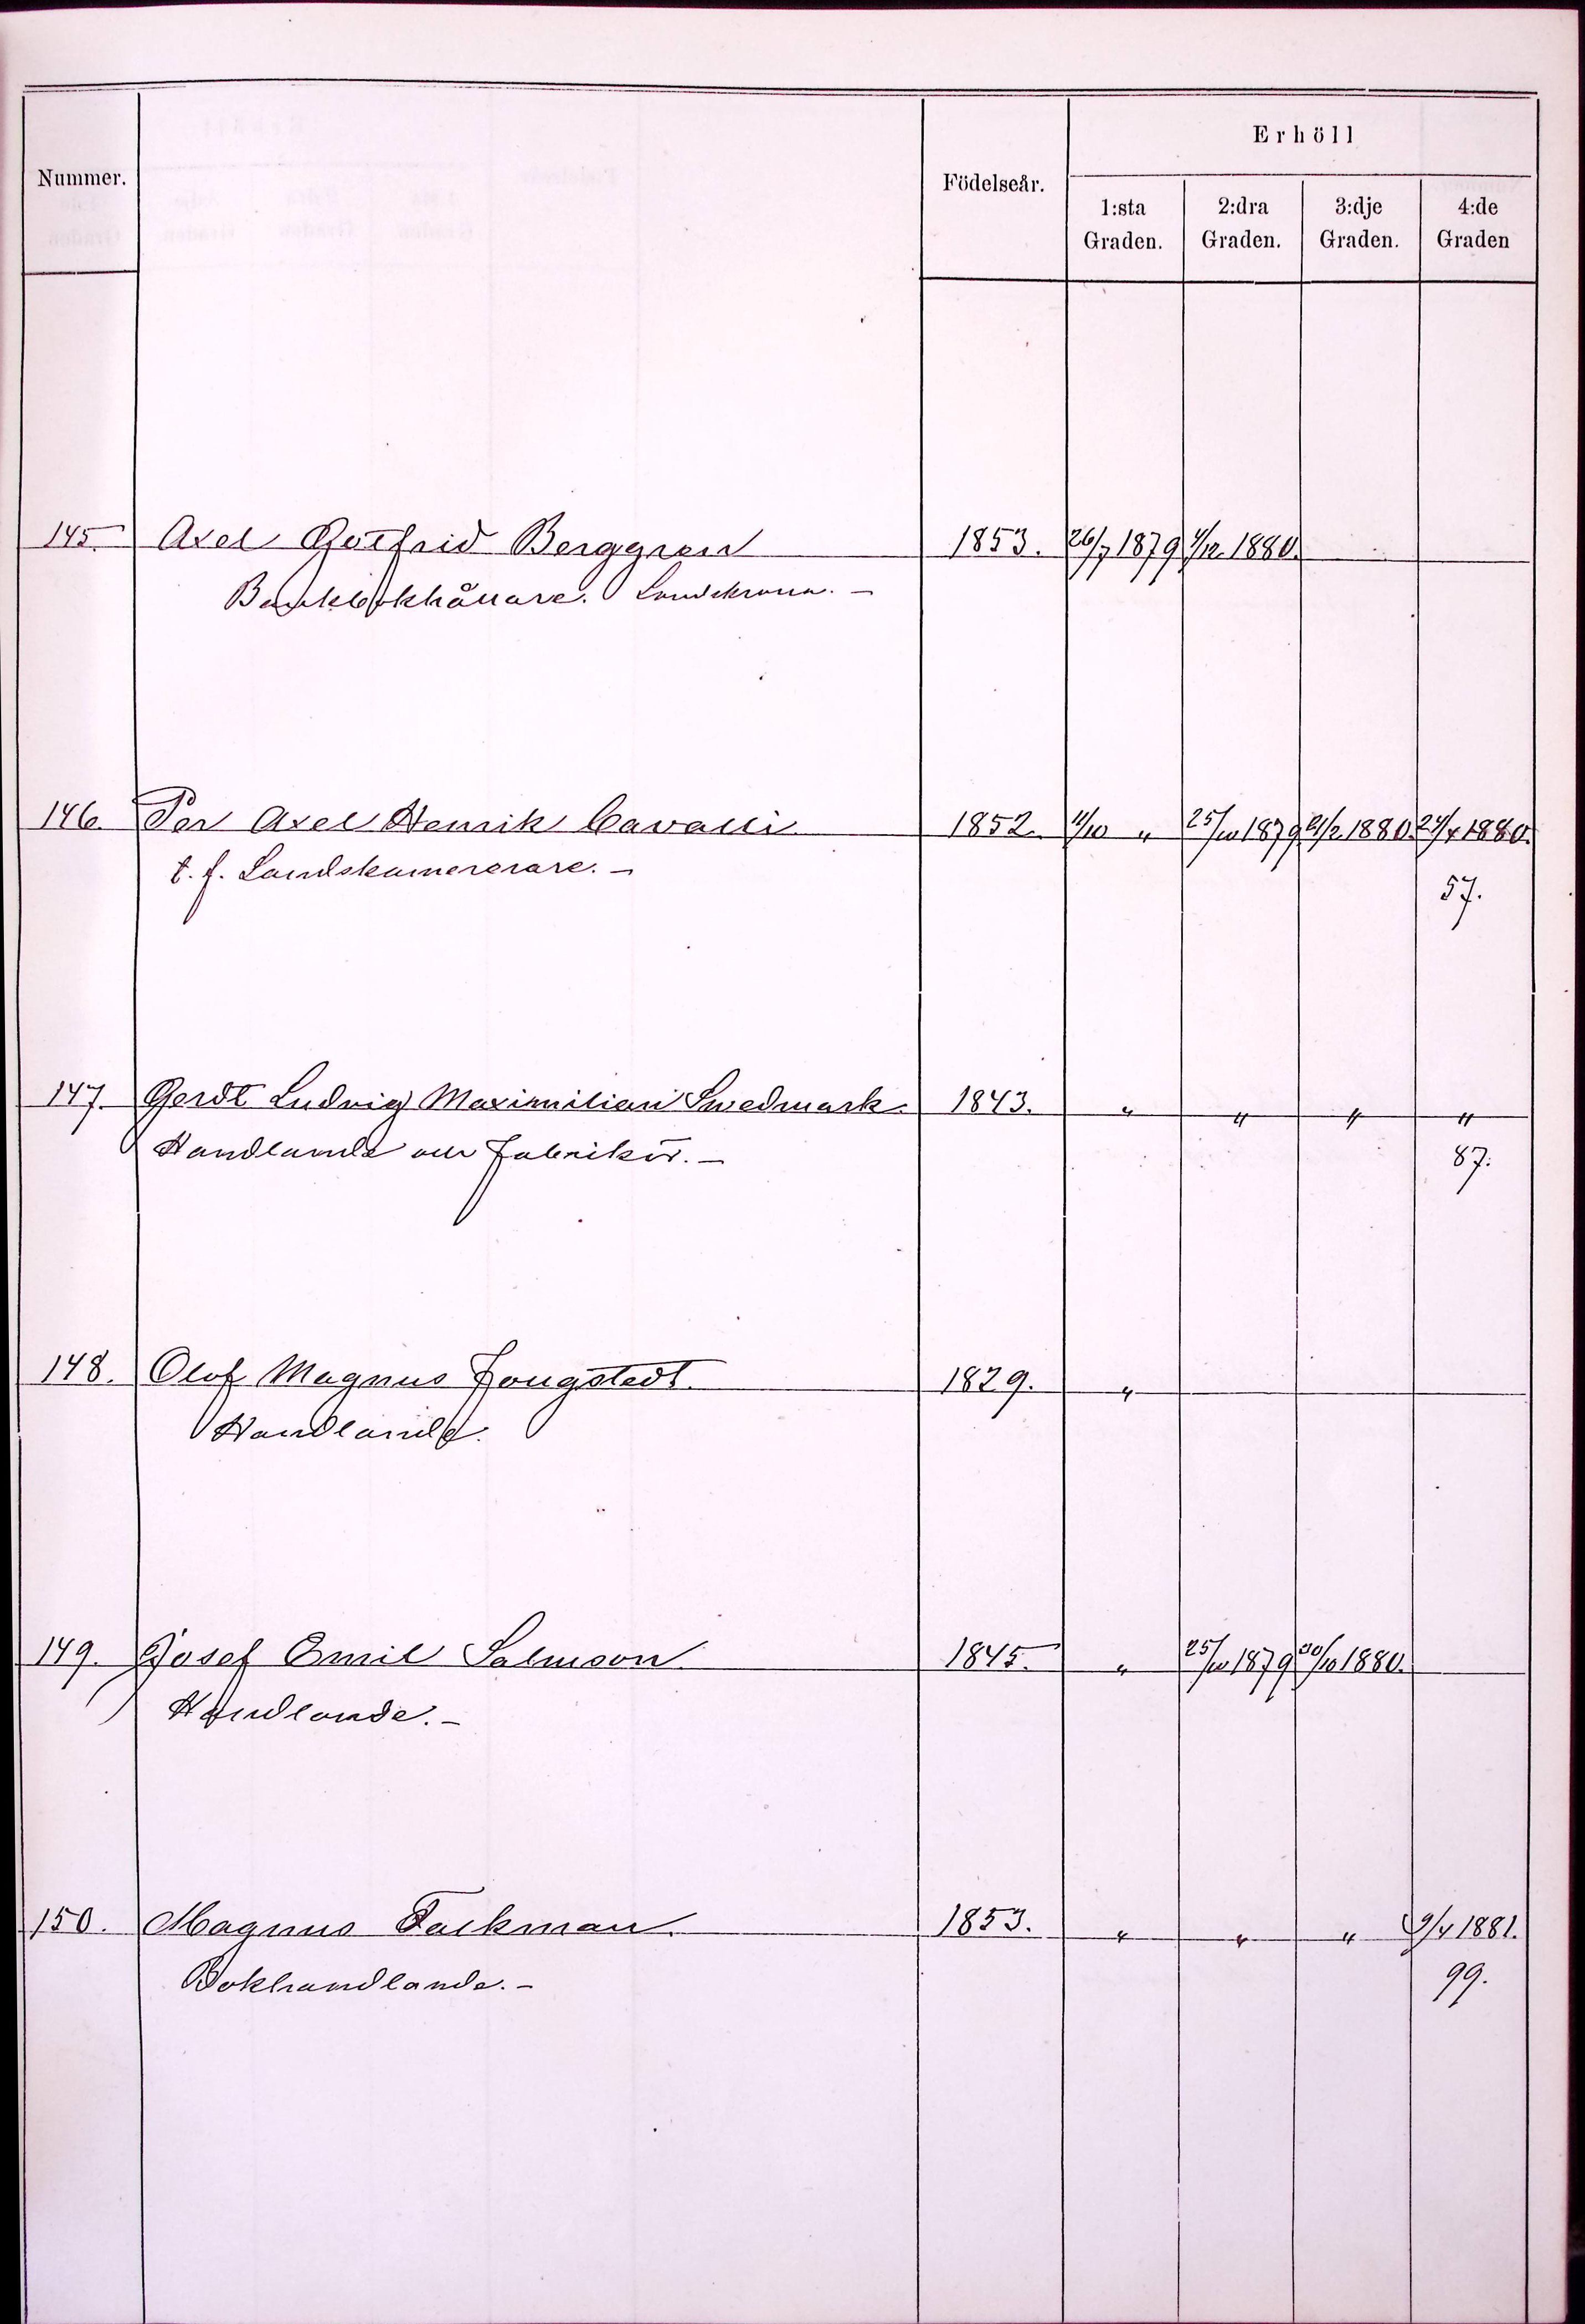 Erhöll
Nummer. Födelseår. 1:sta Graden. 2:dra Graden. 3:dje Graden. 4:de Graden
145. Axel Gottfrid Berggren 1853. 26/7 1879 4/12 1880.
Bankbokhållare. Landskrona. —
146. Per Axel Henrik Cavalli 1852. 11/10 " 25/10 1879 21/2 1880. 24/4 1880.
t. f. Landskamererare. — 57.
147. Gerdt Ludvig Maximilian Swedmark. 1843. " " " "
Handlande och Fabrikör. — 87.
148. Olof Magnus Ljungstedt. 1829. "
Handlande.
149. Josef Emil Salmson 1845. " 25/10 1879 30/10 1880.
Handlande. —
150. Magnus Falkman. 1853. " " " 9/4 1881.
Bokhandlande. — 99.